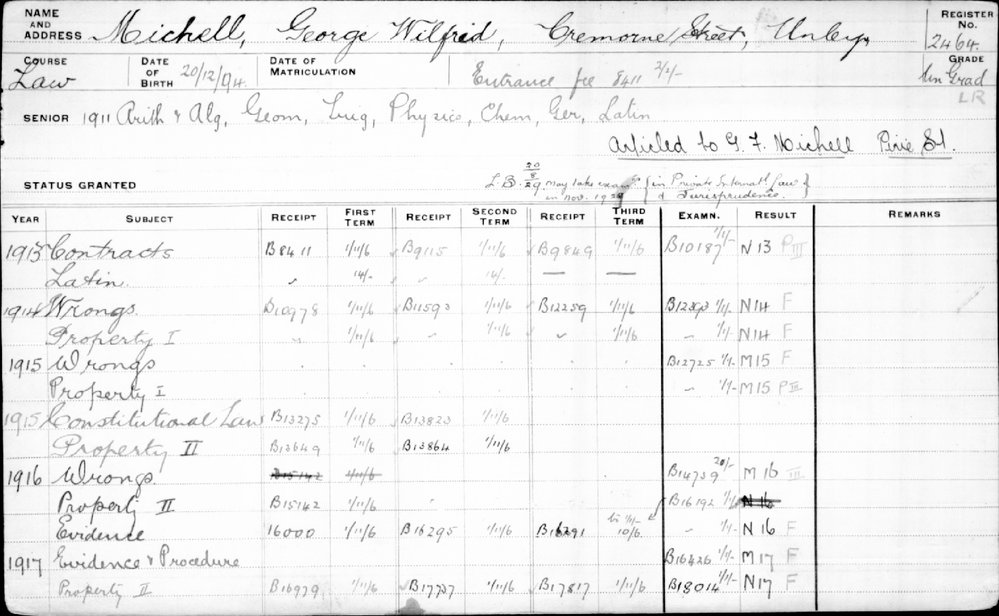 NAME AND ADDRESS Michell, George Wilfrid, Cremorne Street, Unley. REGISTER No. 2464.
COURSE Law DATE OF BIRTH 20/12/94. DATE OF MATRICULATION Entrance fee 8411 2/2/- GRADE Un Grad LR
SENIOR 1911 Arith & Alg, Geom, Trig, Physics, Chem, Ger, Latin
Articled to G. F. Michell Pirie St.
STATUS GRANTED L.B. 20/8/29 may take exam in Nov. {in Private Internatl. Law & Jurisprudence.}
YEAR SUBJECT RECEIPT FIRST TERM RECEIPT SECOND TERM RECEIPT THIRD TERM EXAMN. RESULT REMARKS
1913 Contracts B8411 1/11/6 B9115 1/11/6 B9849 1/11/6 B10187 1/1/- N13 P III
Latin. " 14/- " 14/- — —
1914 Wrongs 1/11/6 B11593 1/11/6 B12259 1/11/6 1/1/- N14 F
Property I " 1/11/6 " 1/11/6 " 1/11/6 " 1/1/- N14 F
1915 Wrongs B12725 1/1/- M15 F
Property I " 1/1/- M15 P III
1915 Constitutional Law B13275 1/11/6 B13823 1/11/6
Property II B13649 1/11/6 B13864 1/11/6
1916 Wrongs. B15142 1/11/6 B14739 20/- M 16 III
Property II B15142 1/11/6 " " B16192 1/1/- N 16
Evidence 16000 1/11/6 B16295 1/11/6 B16291 10/6 " 1/1/- N 16 F
1917 Evidence & Procedure B16426 1/1/- M 17 F
Property II B16979 1/11/6 B17737 1/11/6 B17817 1/11/6 B18014 1/1/- N17 F